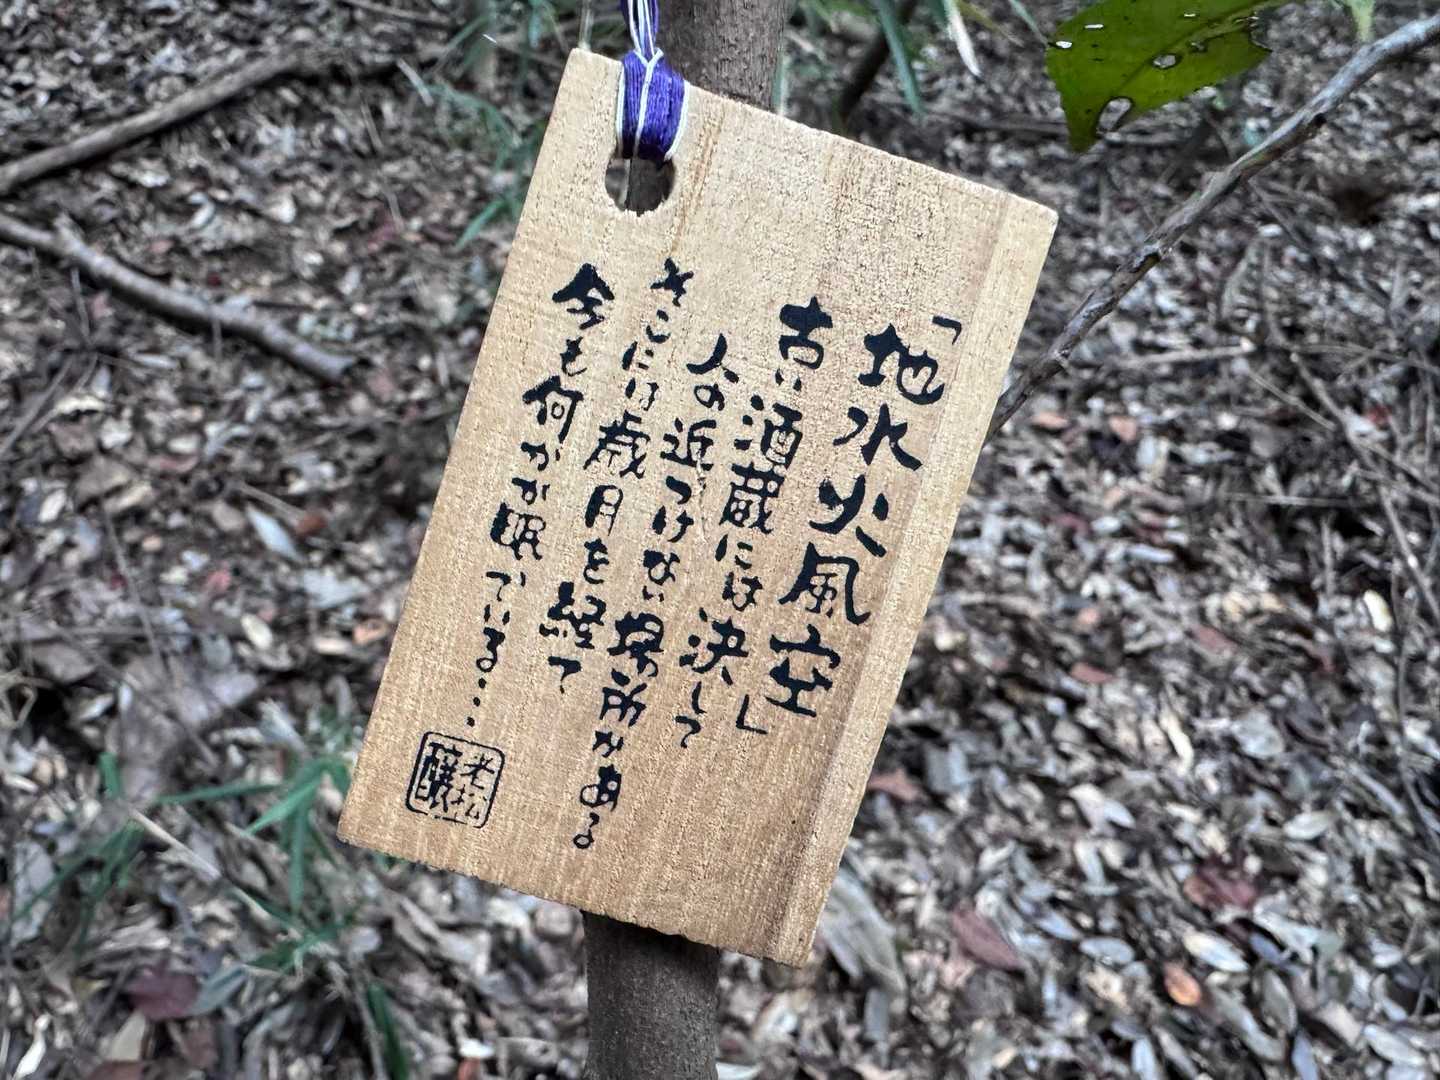 「地水火風空」
古い酒蔵には決して
人の近づけない場所がある
そこには歳月を経て
今も何かが眠っている…
老松
醸